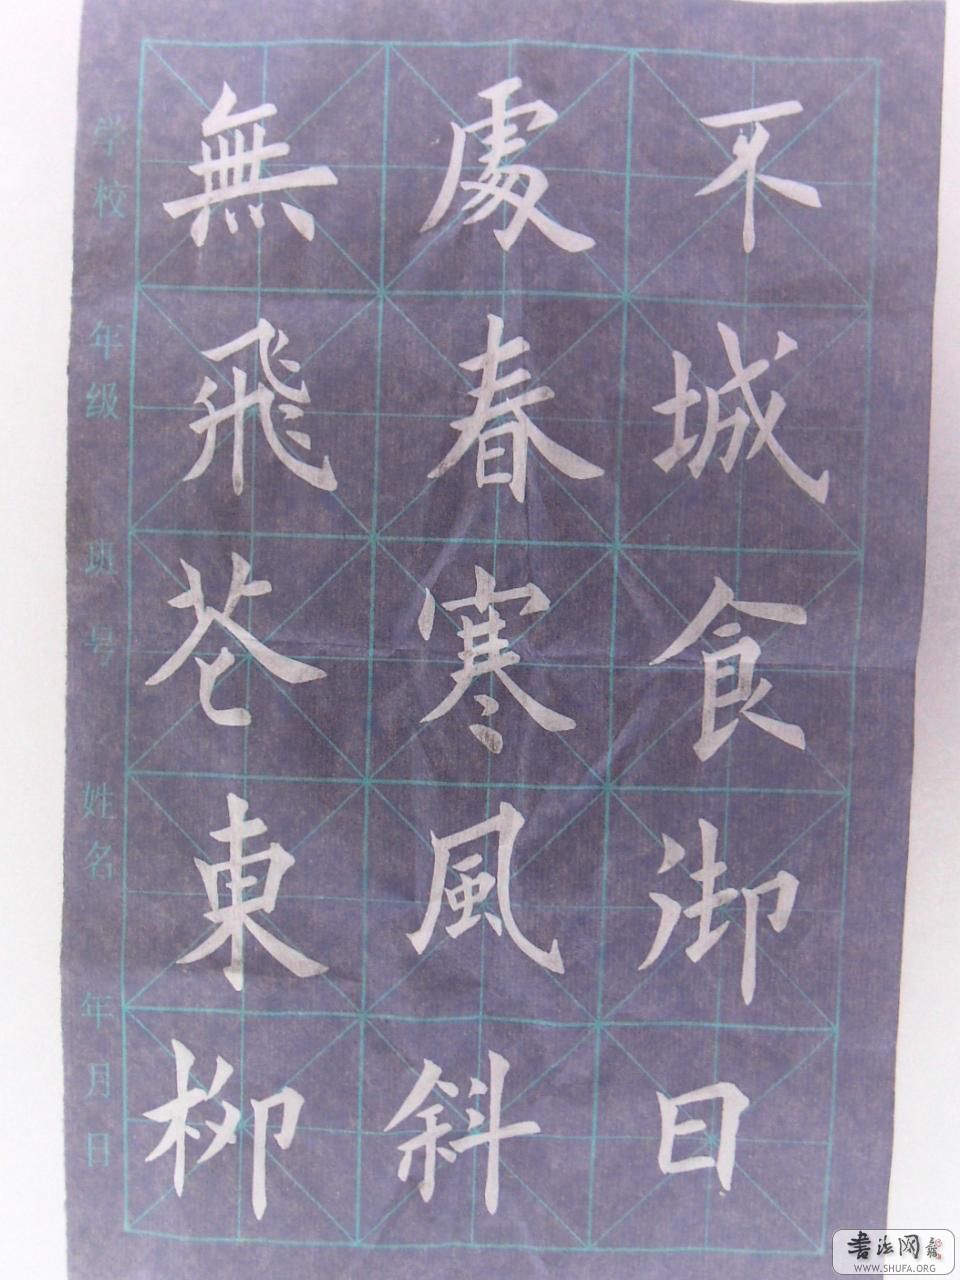 不城食御日
處春寒風斜
無飛苍東柳
学校 年级 班号 姓名 年月日
書法网
WWW.SHUFA.ORG